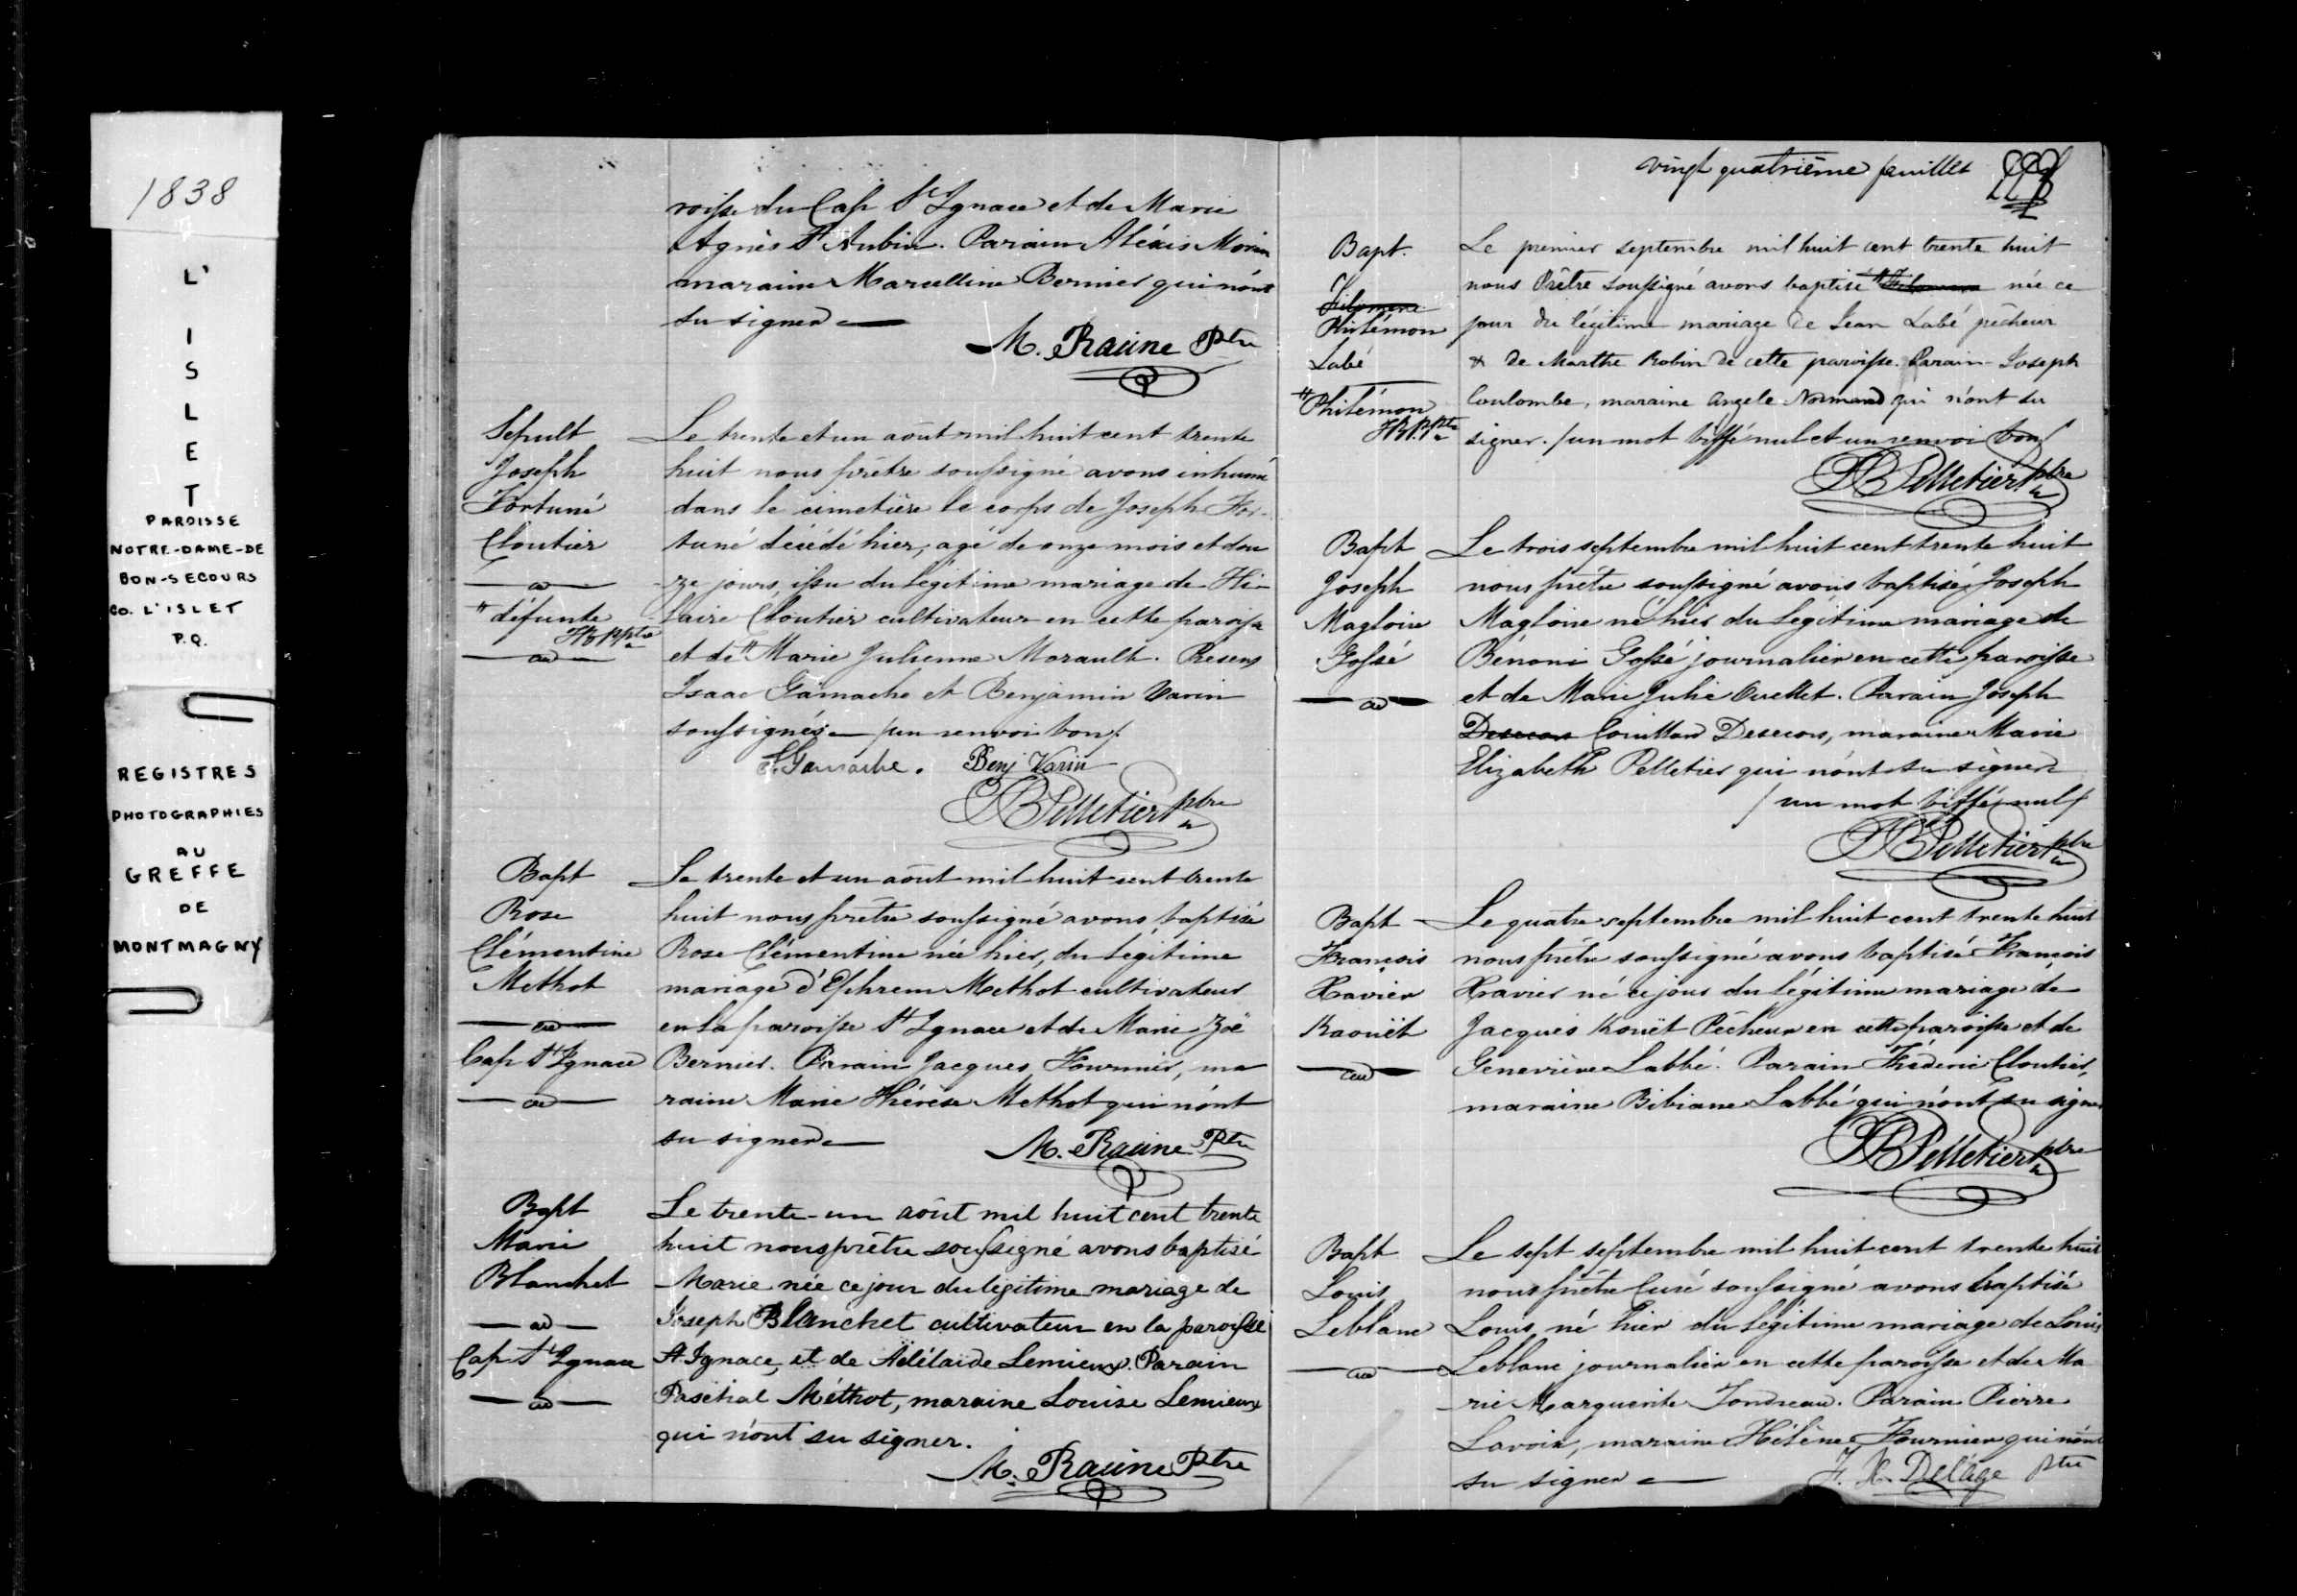 1838
L'
I
S
L
E
T
PAROISSE
NOTRE-DAME-DE
BON-SECOURS
CO. L'ISLET
P.Q.
REGISTRES
PHOTOGRAPHIES
AU
GREFFE
DE
MONTMAGNY
roisse du Cap St Ignace et de Marie
Agnès St Aubin. Parain Aléxis Morin
maraine Marcelline Bernier qui n'ont
su signer
M. Racine Ptre
Sepult
Joseph
Fortuné
Cloutier
# défunte
Le trente et un août mil huit cent trente
huit nous prêtre soussigné avons inhumé
dans le cimetière le corps de Joseph For-
tuné décédé hier, agé de onze mois et dou
ze jours, issu du légitime mariage de Hi-
laire Cloutier cultivateur en cette paroisse
et de # Marie Julienne Morault. Presens
Isaac Gamache et Benjamin Varin
soussignés / un renvoi bon /
I. Gamache. Benj Varin
FB Pelletier ptre
Bapt
Rose
Clémentine
Methot
Cap St Ignace
Le trente et un août mil huit cent trente
huit nous prêtre soussigné avons baptisé
Rose Clémentine née hier, du légitime
mariage d'Ephrem Methot cultivateur
en la paroisse St Ignace et de Marie Zoë
Bernier. Parain Jacques Fournier, ma
raine Marie Thérèse Methot qui n'ont
su signer
M. Racine Ptre
Bapt
Marie
Blanchet
Cap St Ignace
Le trente-un août mil huit cent trente
huit nous prêtre soussigné avons baptisé
Marie née ce jour du légitime mariage de
Joseph Blanchet cultivateur en la paroisse
St Ignace, et de Adélaïde Lemieux. Parain
Paschal Méthot, maraine Louise Lemieux
qui n'ont su signer.
M. Racine Ptre
vingt quatrième feuillet
Bapt.
Filomene
Philémon
Labé
# Philémon
FB P. Ptre
Le premier septembre mil huit cent trente huit
nous Prêtre soussigné avons baptisé # née ce
jour du légitime mariage de Jean Labé pêcheur
& de Marthe Robin de cette paroisse. Parain Joseph
Coulombe, maraine Angele Normand qui n'ont su
signer. / un mot biffé nul et un renvoi bon /
FB Pelletier ptre
Bapt
Joseph
Magloire
Gossé
Le trois septembre mil huit cent trente huit
nous prêtre soussigné avons baptisé Joseph
Magloire né hier du légitime mariage de
Bénoni Gossé journalier en cette paroisse
et de Marie Julie Ouellet. Parain Joseph
Desecors Couillard Desecors, maraine Marie
Elizabeth Pelletier qui n'ont su signer
/ un mot biffé nul /
FB Pelletier ptre
Bapt
François
Xavier
Raouët
Le quatre septembre mil huit cent trente huit
nous prêtre soussigné avons baptisé François
Xavier né ce jour du légitime mariage de
Jacques Rouët Pêcheur en cette paroisse et de
Geneviève Labbé. Parain Fréderic Cloutier,
maraine Bibiane Labbé qui n'ont su signer
FB Pelletier ptre
Bapt
Louis
Leblanc
Le sept septembre mil huit cent trente huit
nous prêtre Curé soussigné avons baptisé
Louis né hier du légitime mariage de Louis
Leblanc journalier en cette paroisse et de Ma
rie Marguerite Tondreau. Parain Pierre
Lavoie, maraine Hélène Fournier qui n'ont
su signer
F. X. Delâge ptre